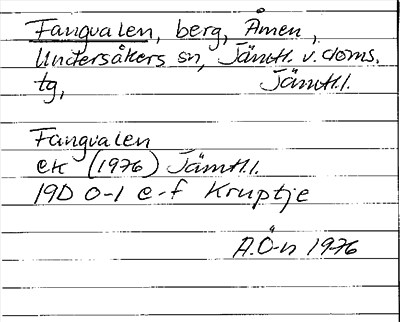 Fangvalen, berg, Åmen,
Undersåkers sn, Jämtl. v. doms.
tg, Jämtl.l.
Fangvalen
ek (1976) Jämtl.l.
19D 0-1 e-f Kruptje
A.Ö-n 1976